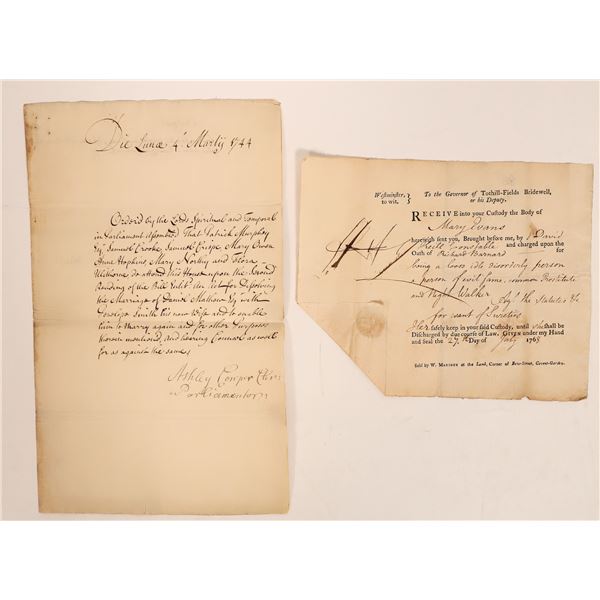 Die Lunæ 4º Martij 1744
Ordered by the Lords Spiritual and Temporal
in Parliament Assembled That Patrick Murphy
Esqr Samuel Crooke, Samuel Crispe, Mary Owen
Anne Hopkins, Mary and Flora
do attend this House upon the Second
Reading of the Bill Intit. An Act for Dissolving
the Marriage of Daniel Mathew Esq with
Smith his now Wife and to enable
him to Marry again and for other Purposes
therein mentioned, and hearing Counsel as well
for as against the same
Ashley Cowper Cler
Parliamentor
Westminster, to wit.
To the Governor of Tothill-Fields Bridewell,
or his Deputy.
RECEIVE into your Custody the Body of
Mary Evans
herewith sent you, Brought before me, by David
Constable and charged upon the
Oath of Richard Barnard for
being a loose idle disorderly person
a person of evil fame, common Prostitute
and Night Walker agt. the Statutes &c
for want of Sureties
Her safely keep in your said Custody, until she shall be
Discharged by due course of Law. GIVEN under my Hand
and Seal the 27th Day of July 1765
Sold by W. at the Corner of Bow-Street, Covent-Garden.